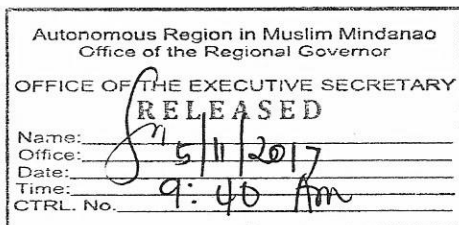 Autonomous Region in Muslim Mindanao
Office of the Regional Governor
OFFICE OF THE EXECUTIVE SECRETARY
RELEASED
Name:
Office:
Date: 5/11/2017
Time: 9:40 Am
CTRL. No.